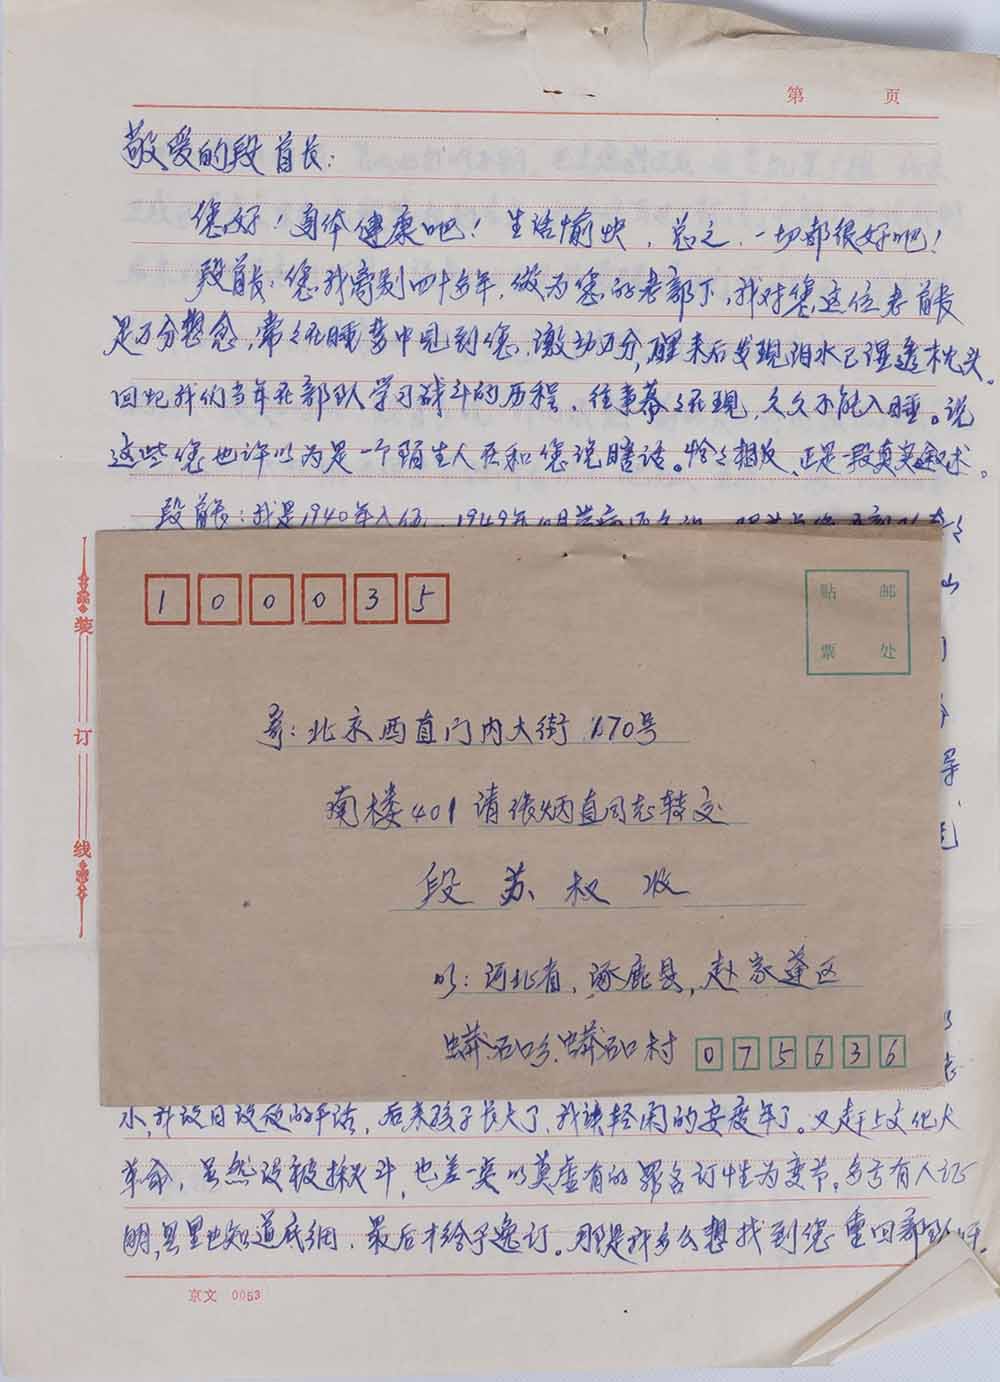 第 页
敬爱的段首长：
您好！身体健康吧！生活愉快，总之，一切都很好吧！
段首长：您我离别四十多年，做为您的老部下，我对您这位老首长
是万分想念，常々在睡梦中见到您，激动万分，醒来后发现泪水已湿透枕头。
回忆我们当年在部队学习战斗的历程，往事幕々在现，久久不能入睡。说
这些您也许以为是一个陌生人在和您说瞎话。恰々相反，正是一段真实叙术。
段首长：我是1940年入伍，1949年
山
导
100035
贴 邮
票 处
寄：北京西直门内大街170号
南楼401请张炳直同志转交
段苏权收
河北省，涿鹿县，赵家蓬区
蟒石口乡，蟒石口村
075636
装
订
线
后来孩子长大了，我该轻闲的安度年了。又赶上文化大
革命，虽然没被揪斗，也差一类的莫虚有的罪名订性为变节，多亏有人证
明，县里也知道底细，最后才给予 订。那是许多么想找到您重回部队
京文 0053